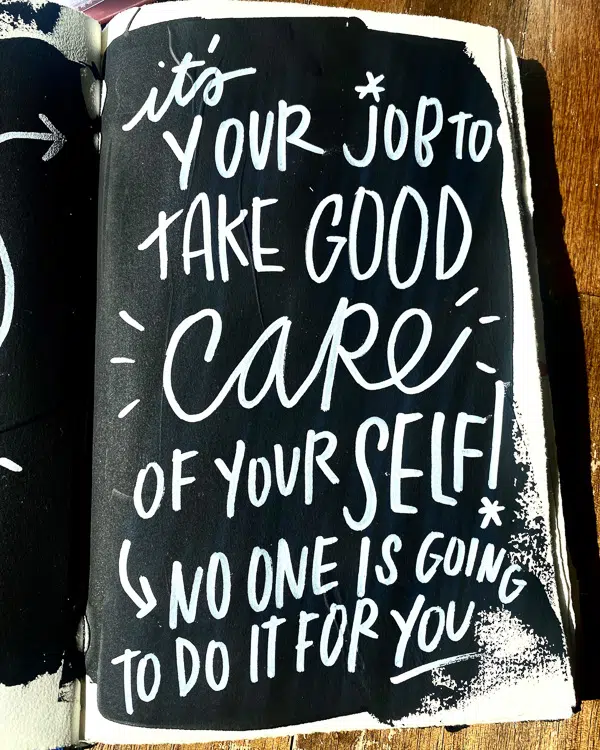 it's
YOUR *JOB TO
TAKE GOOD
CARE
OF YOUR SELF!
*
↳ NO ONE IS GOING
TO DO IT FOR YOU